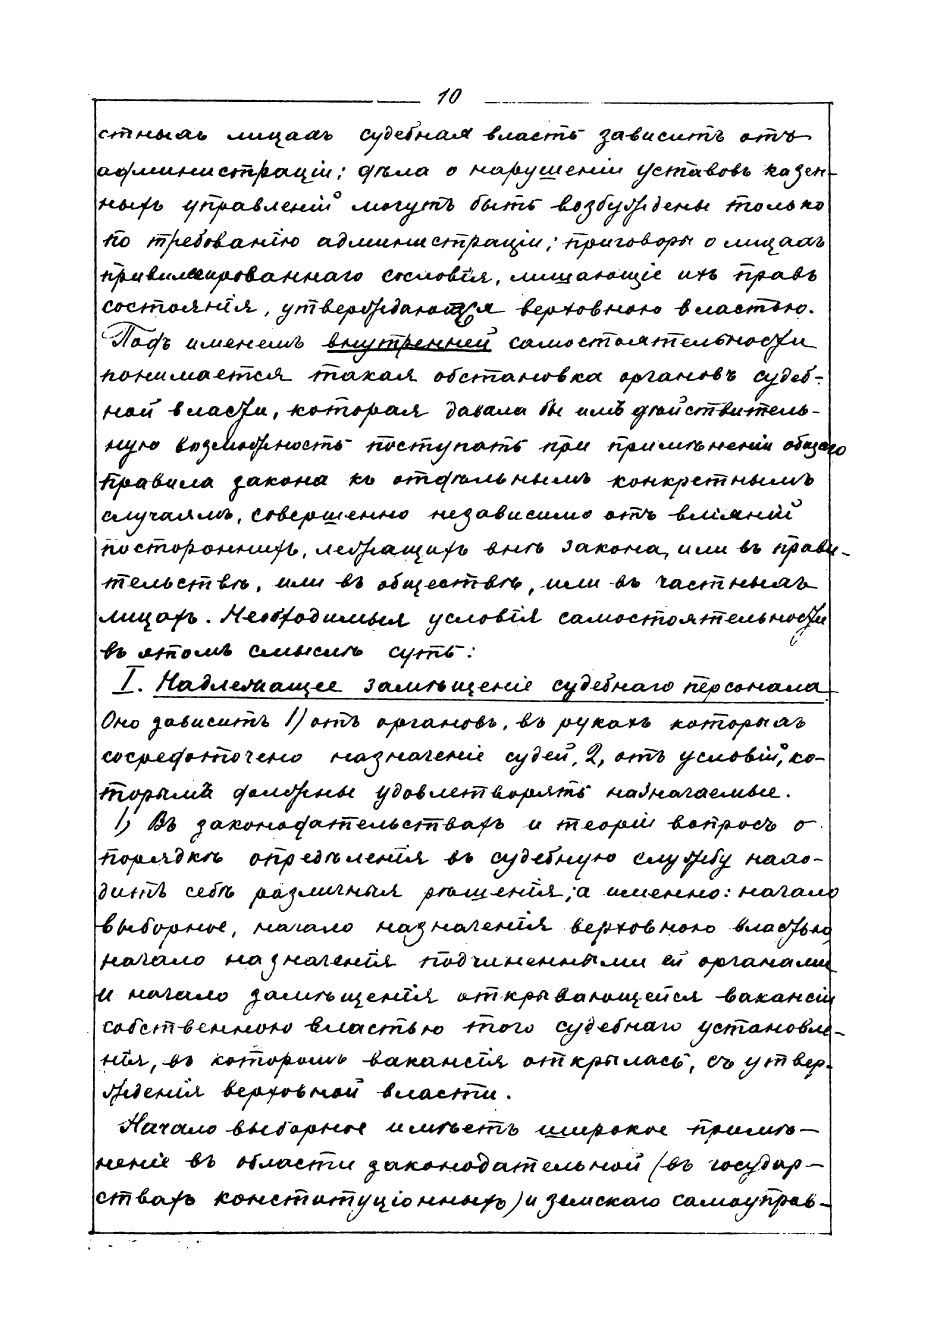 10
стныхъ лицахъ судебная власть зависитъ отъ
администраціи; дѣла о нарушеніи уставовъ казен-
ныхъ управленій могутъ быть возбуждены только
по требованію администраціи; приговоры о лицахъ
привилегированнаго сословія, лишающіе ихъ правъ
состоянія, утверждаются верховною властью.
Подъ именемъ внутренней самостоятельности
понимается такая обстановка органовъ судеб-
ной власти, которая давала бы имъ дѣйствитель-
ную возможность поступать при примѣненіи общаго
правила закона къ отдѣльнымъ конкретнымъ
случаямъ, совершенно независимо отъ вліяній
постороннихъ, лежащихъ внѣ закона, или въ прави-
тельствѣ, или въ обществѣ, или въ частныхъ
лицахъ. Необходимыя условія самостоятельности
въ этомъ смыслѣ суть:
I. Надлежащее замѣщеніе судебнаго персонала
Оно зависитъ 1) отъ органовъ, въ рукахъ которыхъ
сосредоточено назначеніе судей, 2, отъ условій, ко-
торымъ должны удовлетворять назначаемые.
1) Въ законодательствахъ и теоріи вопросъ о
порядкѣ опредѣленія въ судебную службу нахо-
дитъ себѣ различныя рѣшенія, а именно: начало
выборное, начало назначенія верховною властью,
начало назначенія подчиненными ей органами
и начало замѣщенія открывающейся вакансіи
собственною властью того судебнаго установле-
нія, въ которомъ вакансія открылась, съ утвер-
жденія верховной власти.
Начало выборное имѣетъ широкое примѣ-
неніе въ области законодательной (въ государ-
ствахъ конституціонныхъ) и земскаго самоуправ-